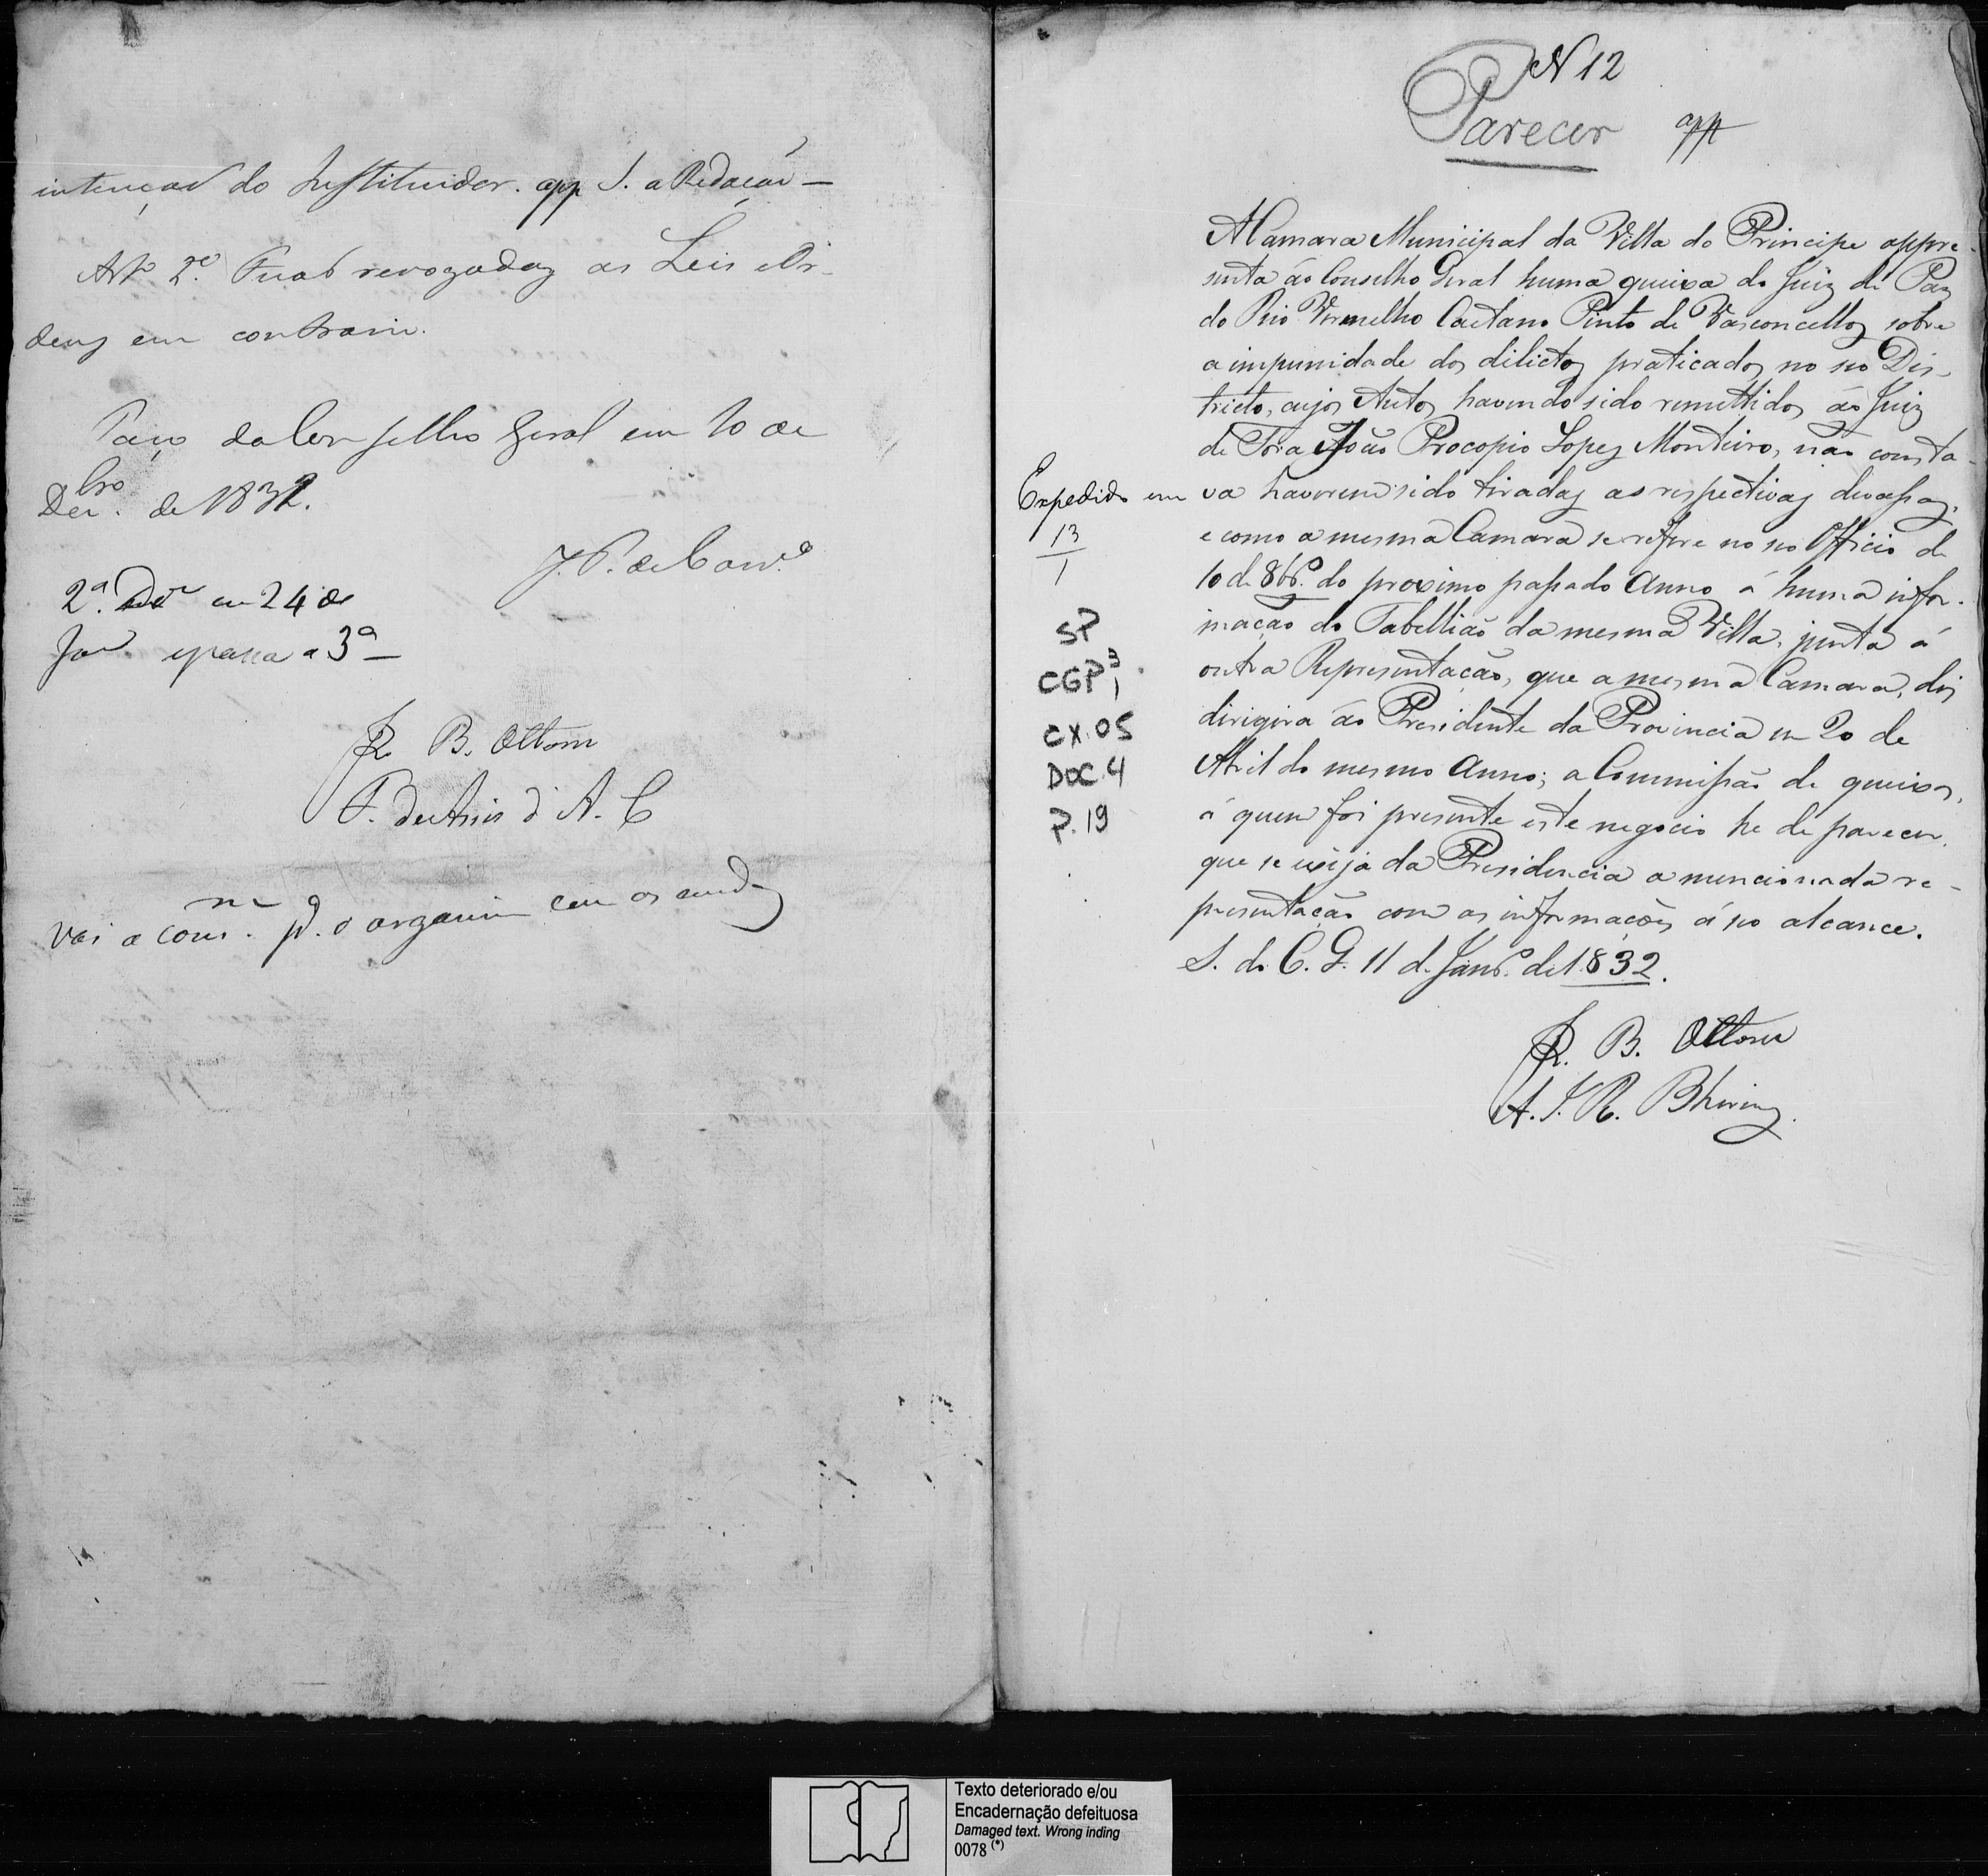 intençaõ do Instituidor. app S. a Redacçaõ —
Art. 2.º Ficaõ revogadas as Leis e Or-
dens em contrario.
Paço do Conselho Geral em 10 de
Dezbro. de 1831.
2.ª Dis em 24 de
Janro e passa a 3ª —
J. B. Ottoni
F. de Assis d' A. C
Vai a Comm. p.ª o organizar com os emdas
N 12
Parecer app
A Camara Municipal da Villa do Principe appre-
senta áo Conselho Geral huma queixa do Juiz de Paz
do Rio Vermelho Caetano Pinto de Vasconcellos sobre
a impunidade dos dilictos praticados no seo Dis-
tricto, cujos Autos havendo sido remettidos áo Juiz
de Fóra João Procopio Lopes Monteiro, não consta-
va haverem sido tiradas as respectivas devassas,
e como a mesma Camara se refere no seo Officio de
10 de 8br.º do proximo passado Anno á huma infor-
mação do Tabellião da mesma Villa, junta á
outra Representação, que a mesma Camara, diz
dirigira áo Presidente da Provincia em 20 de
Abril do mesmo Anno; a Commissão de queixas,
á quem foi presente este negocio he de parecer,
que se exija da Presidencia a mencionada re-
presentação com as informações á seo alcance.
S. do C. G. 11 de Janr.º de 1832.
J. B. Ottoni
A. J. R. Bhering.
Expedido em
13
1
SP
CGP 3
1
CX. 05
DOC. 4
P. 19
Texto deteriorado e/ou
Encadernação defeituosa
Damaged text. Wrong inding
0078 (*)